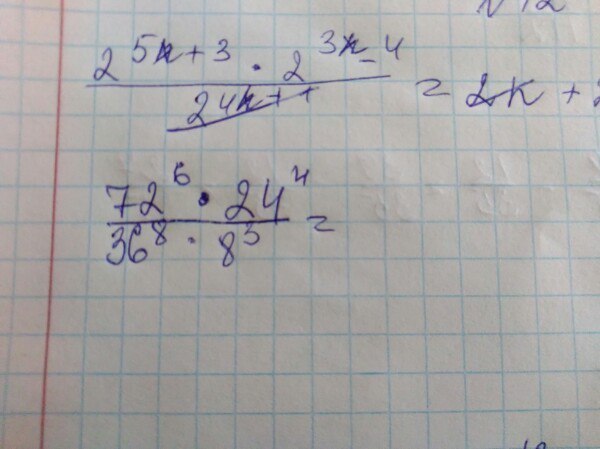 № 12
2^{5k+3} · 2^{3k-4}
2^{4k++} = 2k + 2
72^6 · 24^4
36^8 · 8^3 =